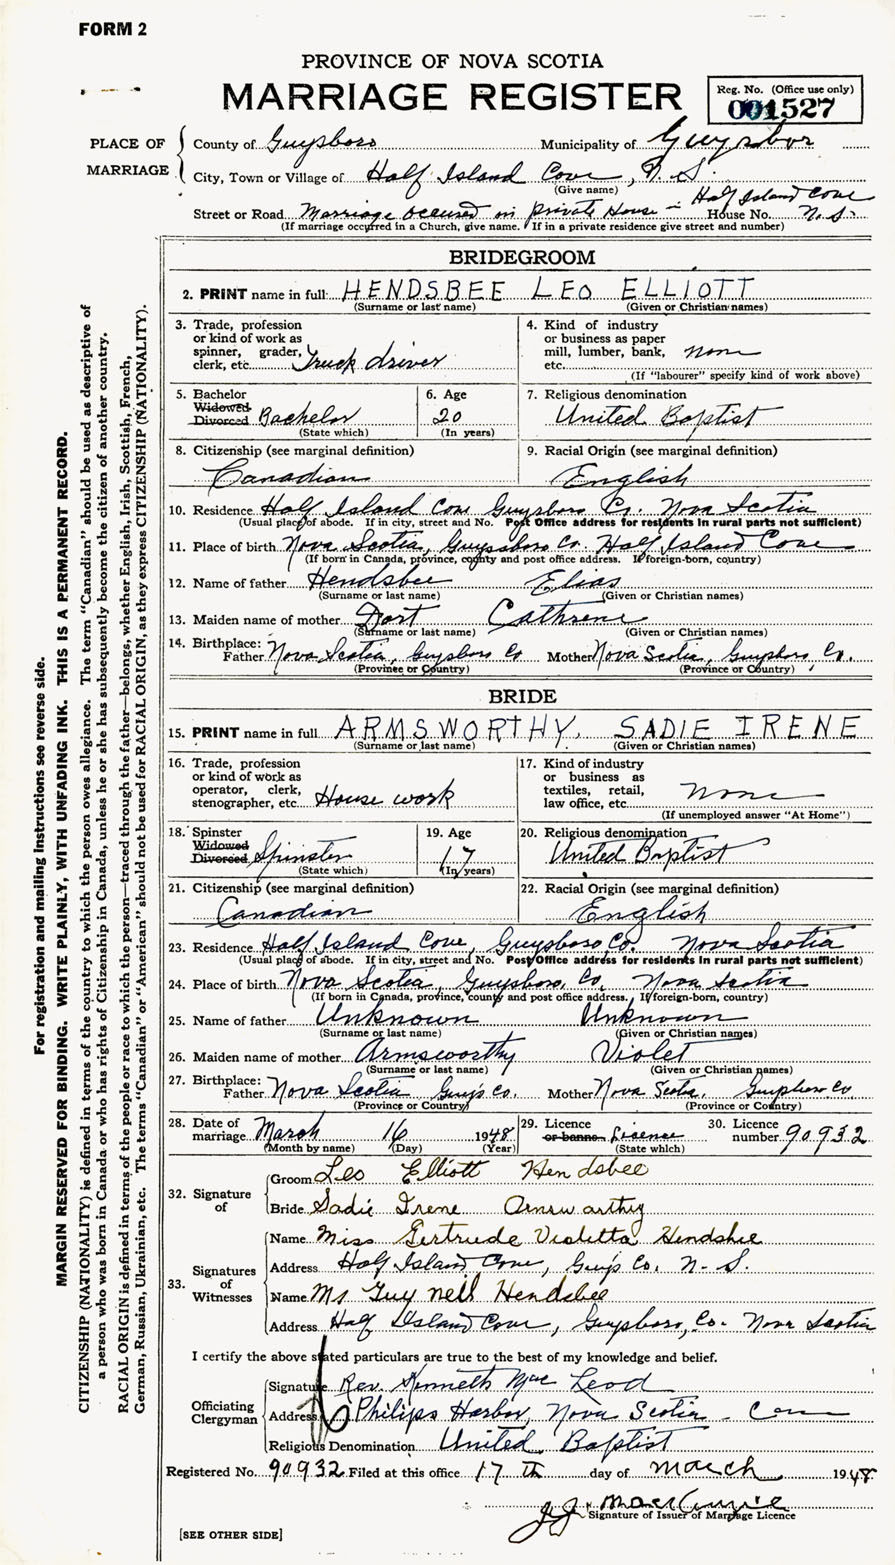 FORM 2
PROVINCE OF NOVA SCOTIA
MARRIAGE REGISTER
Reg. No. (Office use only)
001527
PLACE OF MARRIAGE
County of Guysboro Municipality of Guysbor
City, Town or Village of Half Island Cove, N. S.
(Give name)
Street or Road Marriage occured in private House - Half Island Cove House No. N.S.
(If marriage occurred in a Church, give name. If in a private residence give street and number)
BRIDEGROOM
2. PRINT name in full: HENDSBEE LEO ELLIOTT
(Surname or last name) (Given or Christian names)
3. Trade, profession or kind of work as spinner, grader, clerk, etc. Truck driver
4. Kind of industry or business as paper mill, lumber, bank, etc. none
(If "labourer" specify kind of work above)
5. Bachelor Widowed Divorced Bachelor
(State which)
6. Age 20
(In years)
7. Religious denomination United Baptist
8. Citizenship (see marginal definition) Canadian
9. Racial Origin (see marginal definition) English
10. Residence Half Island Cove Guysboro Co. Nova Scotia
(Usual place of abode. If in city, street and No. Post Office address for residents in rural parts not sufficient)
11. Place of birth Nova Scotia, Guyssboro Co. Half Island Cove
(If born in Canada, province, county and post office address. If foreign-born, country)
12. Name of father Hendsbee Elias
(Surname or last name) (Given or Christian names)
13. Maiden name of mother Dort Cathrene
(Surname or last name) (Given or Christian names)
14. Birthplace: Father Nova Scotia, Guysboro Co Mother Nova Scotia, Guysboro Co.
(Province or Country) (Province or Country)
BRIDE
15. PRINT name in full ARMSWORTHY, SADIE IRENE
(Surname or last name) (Given or Christian names)
16. Trade, profession or kind of work as operator, clerk, stenographer, etc. House work
17. Kind of industry or business as textiles, retail, law office, etc. None
(If unemployed answer "At Home")
18. Spinster Widowed Divorced Spinster
(State which)
19. Age 17
(In years)
20. Religious denomination United Baptist
21. Citizenship (see marginal definition) Canadian
22. Racial Origin (see marginal definition) English
23. Residence Half Island Cove, Guysboro Co. Nova Scotia
(Usual place of abode. If in city, street and No. Post Office address for residents in rural parts not sufficient)
24. Place of birth Nova Scotia, Guysboro, Co, Nova Scotia
(If born in Canada, province, county and post office address. If foreign-born, country)
25. Name of father Unknown Unknown
(Surname or last name) (Given or Christian names)
26. Maiden name of mother Armsworthy Violet
(Surname or last name) (Given or Christian names)
27. Birthplace: Father Nova Scotia Guys Co. Mother Nova Scotia, Guysboro Co
(Province or Country) (Province or Country)
28. Date of marriage March 16 1948
(Month by name) (Day) (Year)
29. Licence or banns Lisence
(State which)
30. Licence number 90932
32. Signature of
Groom Leo Elliott Hendsbee
Bride Sadie Irene
33. Signatures of Witnesses
Name Miss Gertrude Violetta Hendsbee
Address Half Island Cove, Guys Co. N. S.
Name Mr Guy neil Hendsbee
Address Half Island Cove, Guysboro, Co. Nova Scotia
I certify the above stated particulars are true to the best of my knowledge and belief.
Officiating Clergyman
Signature Rev. Kenneth Mac Leod
Address Philips Harbor, Nova Scotia
Religious Denomination United Baptist
Registered No. 90932 Filed at this office 17 th day of March 1948
J.J. MacKenzie
Signature of Issuer of Marriage Licence
[SEE OTHER SIDE]
For registration and mailing instructions see reverse side.
MARGIN RESERVED FOR BINDING. WRITE PLAINLY, WITH UNFADING INK. THIS IS A PERMANENT RECORD.
CITIZENSHIP (NATIONALITY) is defined in terms of the country to which the person owes allegiance. The term "Canadian" should be used as descriptive of
a person who was born in Canada or who has rights of Citizenship in Canada, unless he or she has subsequently become the citizen of another country.
RACIAL ORIGIN is defined in terms of the people or race to which the person—traced through the father—belongs, whether English, Irish, Scottish, French,
German, Russian, Ukrainian, etc. The terms "Canadian" or "American" should not be used for RACIAL ORIGIN, as they express CITIZENSHIP (NATIONALITY).